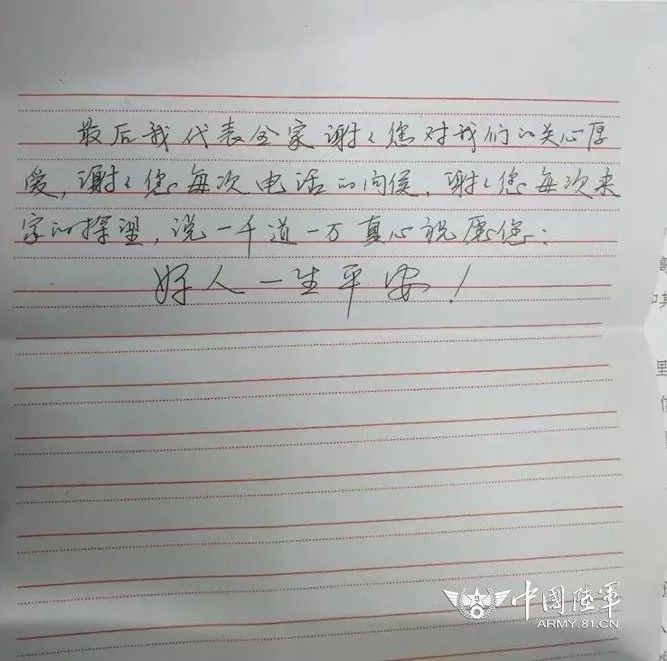 最后我代表全家谢谢您对我们的关心厚
爱，谢谢您每次电话的问侯，谢谢您每次来
家的探望，说一千道一万真心祝愿您：
好人一生平安！
中國陸軍
ARMY.81.CN
里